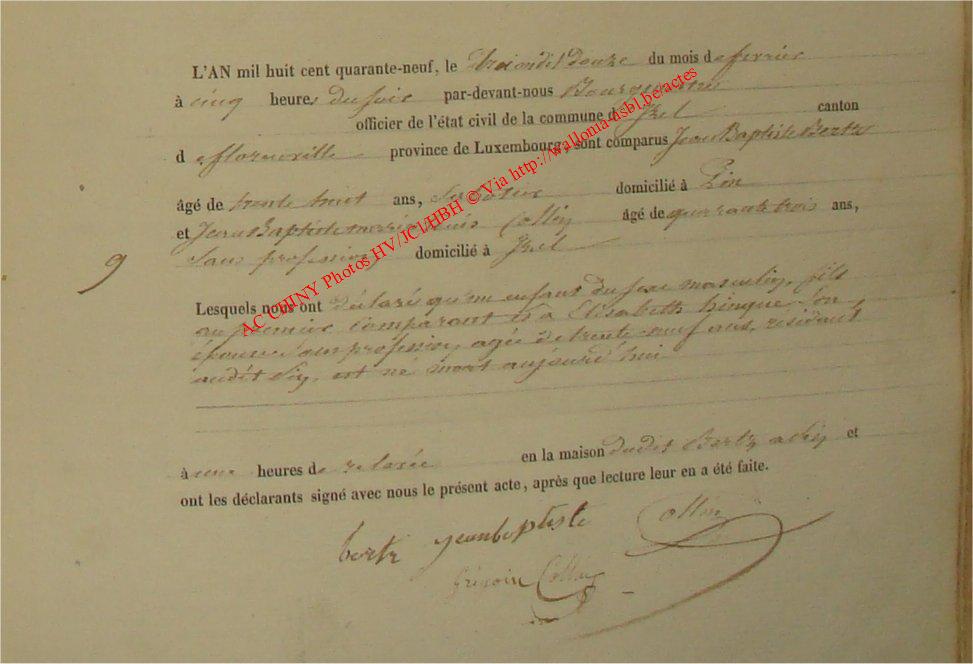 L'AN mil huit cent quarante-neuf, le douze du mois de fevrier
à cinq heures du soir par-devant-nous Bourgmestre
officier de l'état civil de la commune d'Izel canton
de florenville province de Luxembourg, sont comparus Jean Baptiste Bertz
âgé de trente huit ans, domicilié à Pin
et Jean Baptiste marie Collin âgé de quarante trois ans,
9 Sans profession, domicilié à Izel
Lesquels nous ont déclaré qu'un enfant du sexe masculin, fils
au premier comparant et à Elisabeth hinque Son
épouse, Sans profession, agée de trente neuf ans, résidant
audit Pin, est né mort aujourd'hui
à une heures de relevée en la maison dudit Bertz a Pin et
ont les déclarants signé avec nous le présent acte, après que lecture leur en a été faite.
bertz jeanbaptiste Collin
Collin
AC CHINY Photos HV/JCl/HBH © Via http://wallonia-asbl.be/actes